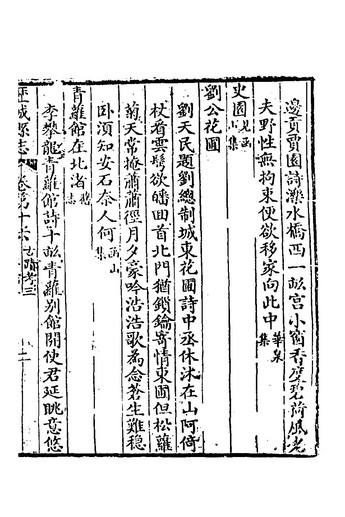 邊貢賈園詩灤水橋西一畝宮小窗香度碧荷風老
夫野性無拘束便欲移家向此中華泉集
史園見函山集
劉公花圃
劉天民題劉總制城東花圃詩中丞休沐在山阿倚
杖看雲鬢欲皤曲首北門猶鎖鑰寄情東圃但松蘿
菊天常掩蕭蕭徑月夕豪吟浩浩歌為念蒼生難穩
卧須知安石奈人何函山集
青蘿館在北渚舊志
李攀龍青蘿館詩十畝青蘿別館開使君延眺意悠
歷城縣志 卷第十六 古蹟考三